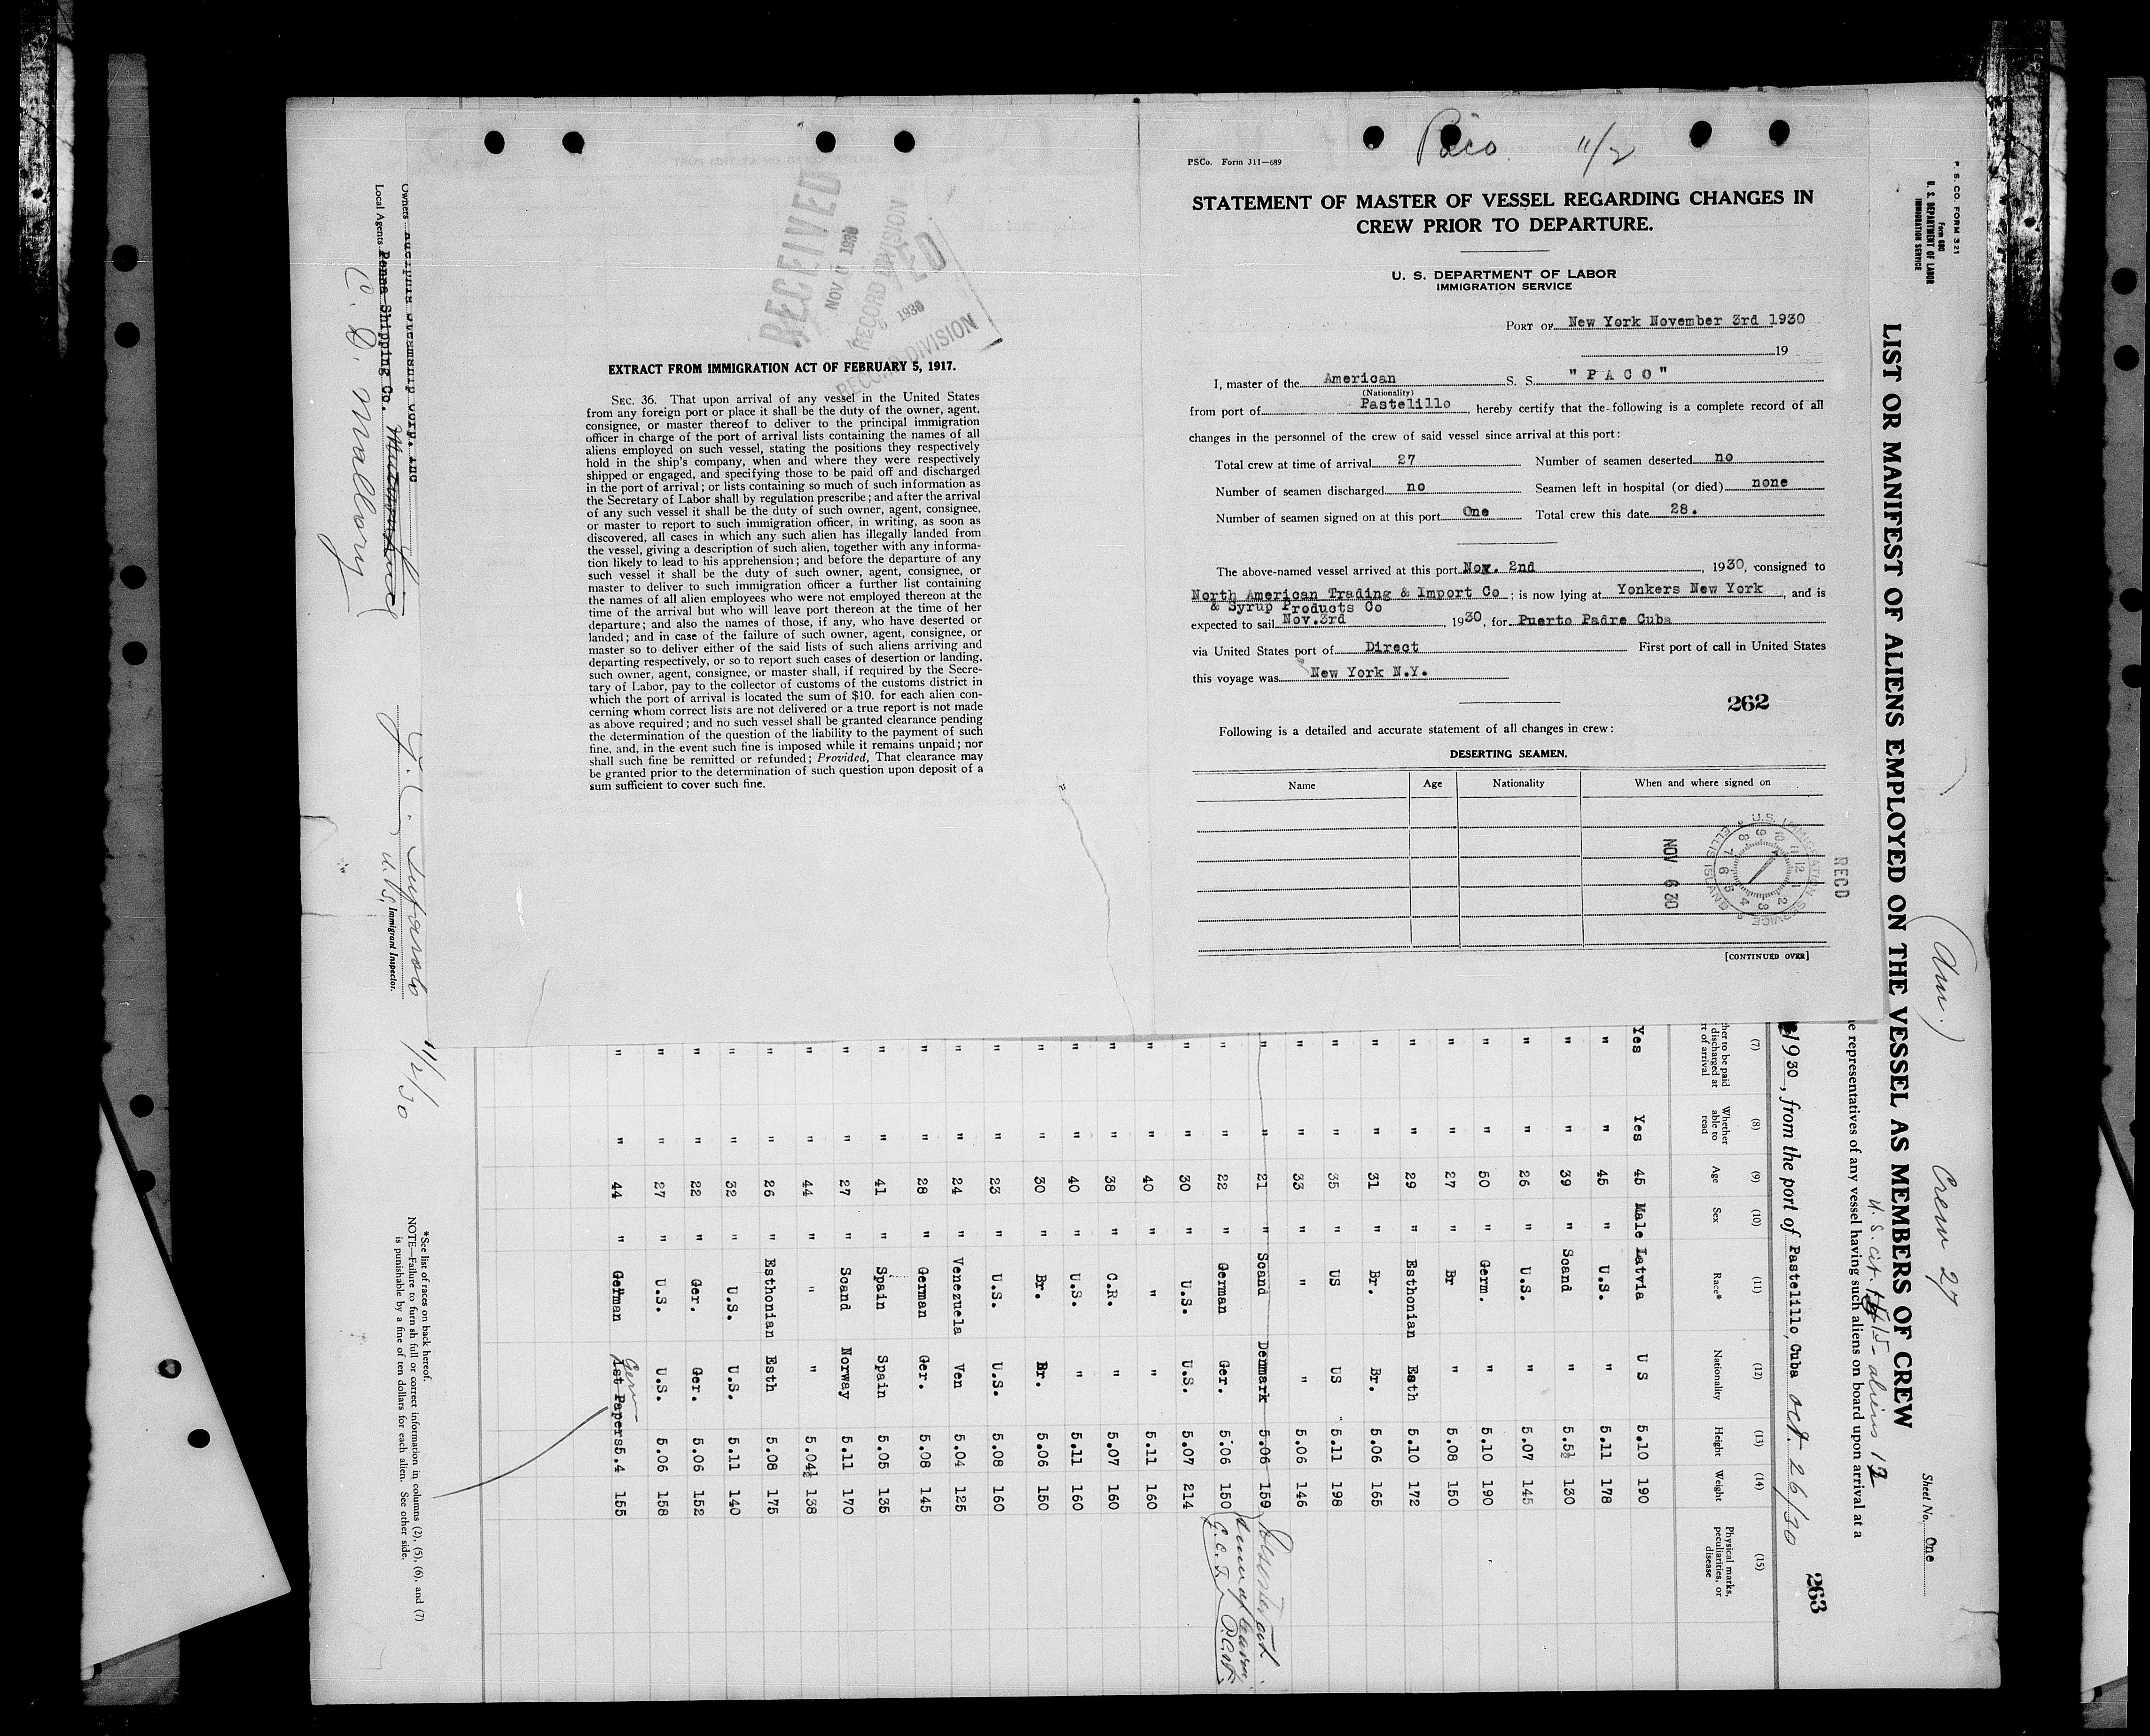 Paco 11/2
PSCo. Form J11—689
STATEMENT OF MASTER OF VESSEL REGARDING CHANGES IN
CREW PRIOR TO DEPARTURE.
U. S. DEPARTMENT OF LABOR
IMMIGRATION SERVICE
PORT OF New York November 3rd 1930
19
I, master of the American S. S. " P A C O "
(Nationality)
from port of Pastelillo, hereby certify that the following is a complete record of all
changes in the personnel of the crew of said vessel since arrival at this port:
Total crew at time of arrival 27 Number of seamen deserted no
Number of seamen discharged no Seamen left in hospital (or died) none
Number of seamen signed on at this port One Total crew this date 28.
The above-named vessel arrived at this port Nov. 2nd, 1930, consigned to
North American Trading & Import Co; is now lying at Yonkers New York, and is
& Syrup Products Co
expected to sail Nov.3rd, 1930, for Puerto Padre Cuba
via United States port of Direct First port of call in United States
this voyage was New York N.Y.
262
Following is a detailed and accurate statement of all changes in crew:
DESERTING SEAMEN.
Name Age Nationality When and where signed on
REC'D
U.S. IMMIGRATION SERVICE
ELLIS ISLAND
NOV 6 30
[CONTINUED OVER]
RECEIVED
NOV 1930
RECORD DIVISION
1930
RECORD DIVISION
EXTRACT FROM IMMIGRATION ACT OF FEBRUARY 5, 1917.
SEC. 36. That upon arrival of any vessel in the United States
from any foreign port or place it shall be the duty of the owner, agent,
consignee, or master thereof to deliver to the principal immigration
officer in charge of the port of arrival lists containing the names of all
aliens employed on such vessel, stating the positions they respectively
hold in the ship's company, when and where they were respectively
shipped or engaged, and specifying those to be paid off and discharged
in the port of arrival; or lists containing so much of such information as
the Secretary of Labor shall by regulation prescribe; and after the arrival
of any such vessel it shall be the duty of such owner, agent, consignee,
or master to report to such immigration officer, in writing, as soon as
discovered, all cases in which any such alien has illegally landed from
the vessel, giving a description of such alien, together with any informa-
tion likely to lead to his apprehension; and before the departure of any
such vessel it shall be the duty of such owner, agent, consignee, or
master to deliver to such immigration officer a further list containing
the names of all alien employees who were not employed thereon at the
time of the arrival but who will leave port thereon at the time of her
departure; and also the names of those, if any, who have deserted or
landed; and in case of the failure of such owner, agent, consignee, or
master so to deliver either of the said lists of such aliens arriving and
departing respectively, or so to report such cases of desertion or landing,
such owner, agent, consignee, or master shall, if required by the Secre-
tary of Labor, pay to the collector of customs of the customs district in
which the port of arrival is located the sum of $10. for each alien con-
cerning whom correct lists are not delivered or a true report is not made
as above required; and no such vessel shall be granted clearance pending
the determination of the question of the liability to the payment of such
fine, and, in the event such fine is imposed while it remains unpaid; nor
shall such fine be remitted or refunded; Provided, That clearance may
be granted prior to the determination of such question upon deposit of a
sum sufficient to cover such fine.
P. S. CO. FORM 321
Form 680
U. S. DEPARTMENT OF LABOR
IMMIGRATION SERVICE
(Am.) Crew 27 Sheet No. One
LIST OR MANIFEST OF ALIENS EMPLOYED ON THE VESSEL AS MEMBERS OF CREW
U. S. cit. 15 aliens 12
e representatives of any vessel having such aliens on board upon arrival at a
263
1930, from the port of Pastelillo, Cuba Oct. 26/30
(7) (8) (9) (10) (11) (12) (13) (14) (15)
her to be paid discharged at rt of arrival Whether able to read Age Sex Race* Nationality Height Weight Physical marks, peculiarities, or disease
Yes Yes 45 Male Latvia U S 5.10 190
" " 45 " U.S. " 5.11 178
" " 39 " Scand " 5.5½ 130
" " 26 " U.S. " 5.07 145
" " 50 " Germ. " 5.10 190
" " 27 " Br " 5.08 150
" " 29 " Esthonian Esth 5.10 172
" " 31 " Br. Br. 5.06 165
" " 35 " US US 5.11 198
" " 33 " " " 5.06 146
" " 21 " Scand Denmark 5.06 159
" " 22 " German Ger. 5.06 150
" " 30 " U.S. U.S. 5.07 214
" " 40 " " " 5.11 160
" " 38 " C.R. " 5.07 160
" " 40 " U.S. " 5.11 160
" " 30 " Br. Br. 5.06 150
" " 23 " U.S. U.S. 5.08 160
" " 24 " Venezuela Ven 5.04 125
" " 28 " German Ger. 5.08 145
" " 41 " Spain Spain 5.05 135
" " 27 " Scand Norway 5.11 170
" " 44 " " " 5.04½ 138
" " 26 " Esthonian Esth 5.08 175
" " 32 " U.S. U.S. 5.11 140
" " 22 " Ger. Ger. 5.06 152
" " 27 " U.S. U.S. 5.06 158
" " 44 " German 1st Papers Germ 5.4 155
Owners Steamship Corp. Inc
Local Agents Penna Shipping Co.
C. D. Mallory
U.S. Immigrant Inspector.
11/2/30
*See list of races on back hereof.
NOTE—Failure to furnish full or correct information in columns (2), (5), (6), and (7)
is punishable by a fine of ten dollars for each alien. See other side.